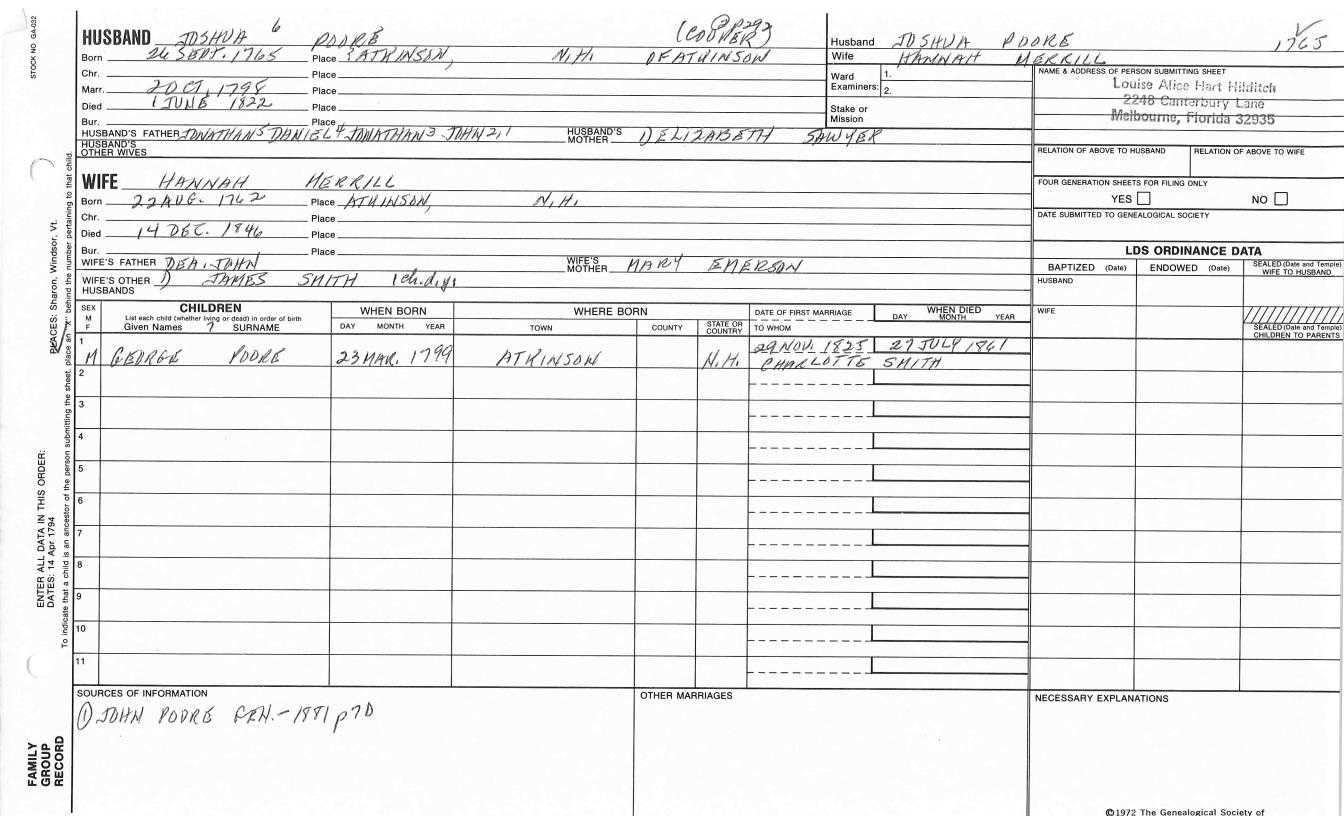 STOCK NO. GA-032
HUSBAND JOSHUA 6 POORE
Born 26 SEPT. 1765 Place ? ATKINSON, N.H. OF ATKINSON
Chr. Place
Marr. 2 OCT. 1798 Place
Died 1 JUNE 1822 Place
Bur. Place
HUSBAND'S FATHER JONATHAN5 DANIEL4 JONATHAN3 JOHN2,1 HUSBAND'S MOTHER ELIZABETH SAWYER
HUSBAND'S OTHER WIVES
Husband JOSHUA POORE 1765
Wife HANNAH MERRILL
Ward Examiners: 1.
2.
Stake or Mission
NAME & ADDRESS OF PERSON SUBMITTING SHEET
Louise Alice Hart Hilditch
2248 Canterbury Lane
Melbourne, Florida 32935
RELATION OF ABOVE TO HUSBAND RELATION OF ABOVE TO WIFE
FOUR GENERATION SHEETS FOR FILING ONLY
YES NO
DATE SUBMITTED TO GENEALOGICAL SOCIETY
WIFE HANNAH MERRILL
Born 22 AUG. 1762 Place ATKINSON, N.H.
Chr. Place
Died 14 DEC. 1846 Place
Bur. Place
WIFE'S FATHER DEA. JOHN WIFE'S MOTHER MARY EMERSON
WIFE'S OTHER HUSBANDS 1) JAMES SMITH 1 ch.d.y.
LDS ORDINANCE DATA
BAPTIZED (Date) ENDOWED (Date) SEALED (Date and Temple) WIFE TO HUSBAND
HUSBAND
WIFE
SEALED (Date and Temple) CHILDREN TO PARENTS
SEX M F
CHILDREN
List each child (whether living or dead) in order of birth
Given Names 7 SURNAME
WHEN BORN
DAY MONTH YEAR
WHERE BORN
TOWN COUNTY STATE OR COUNTRY
DATE OF FIRST MARRIAGE
TO WHOM
WHEN DIED
DAY MONTH YEAR
1
M GEORGE POORE 23 MAR. 1799 ATKINSON N.H. 29 NOV. 1825 27 JULY 1861
CHARLOTTE SMITH
2
3
4
5
6
7
8
9
10
11
SOURCES OF INFORMATION
① JOHN POORE GEN.-1881 p70
OTHER MARRIAGES
NECESSARY EXPLANATIONS
©1972 The Genealogical Society of
PLACES: Sharon, Windsor, Vt.
ENTER ALL DATA IN THIS ORDER:
DATES: 14 Apr 1794
To indicate that a child is an ancestor of the person submitting the sheet, place an "X" behind the number pertaining to that child.
FAMILY
GROUP
RECORD